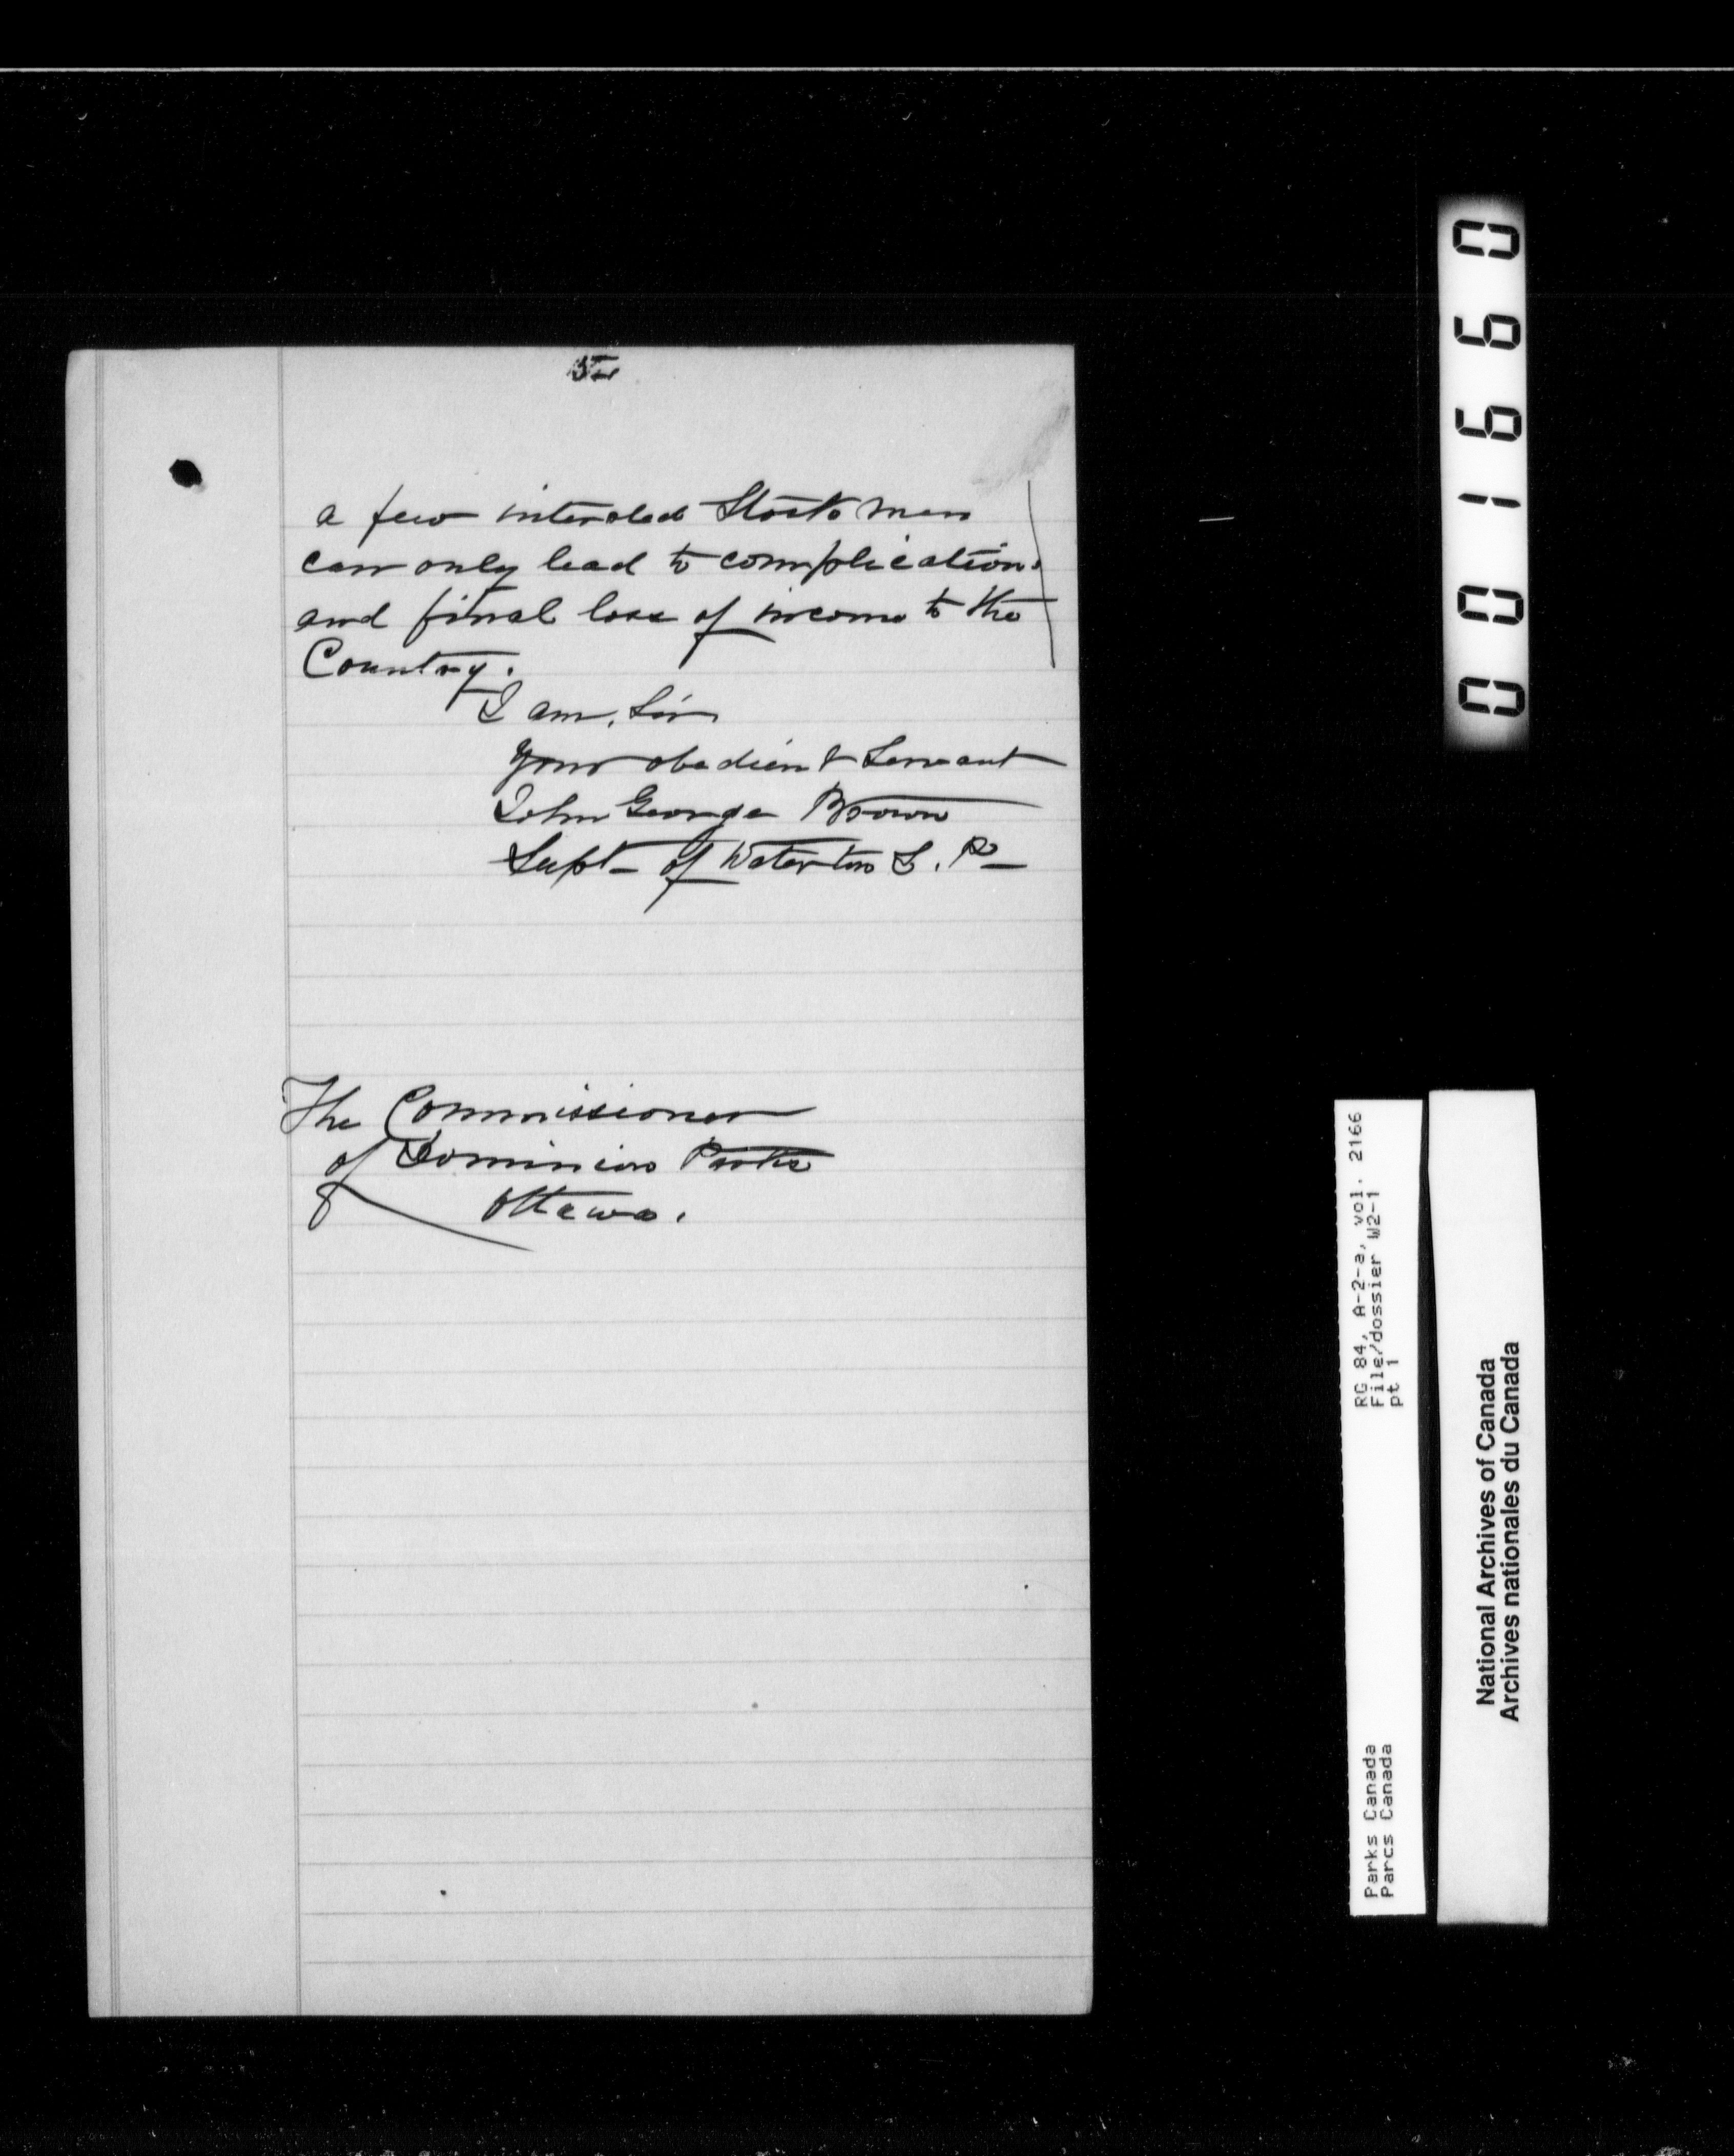 5
a few interested Stock men
can only lead to complications
and final loss of income to the
Country.
I am, Sir
Your obedient Servant
John George Brown
Supt - of Waterton L. P -
The Commissioner
of Dominion Parks
Ottawa.
001660
RG 84, A-2-a, vol. 2166
File/dossier W2-1
pt 1
Parks Canada
Parcs Canada
National Archives of Canada
Archives nationales du Canada